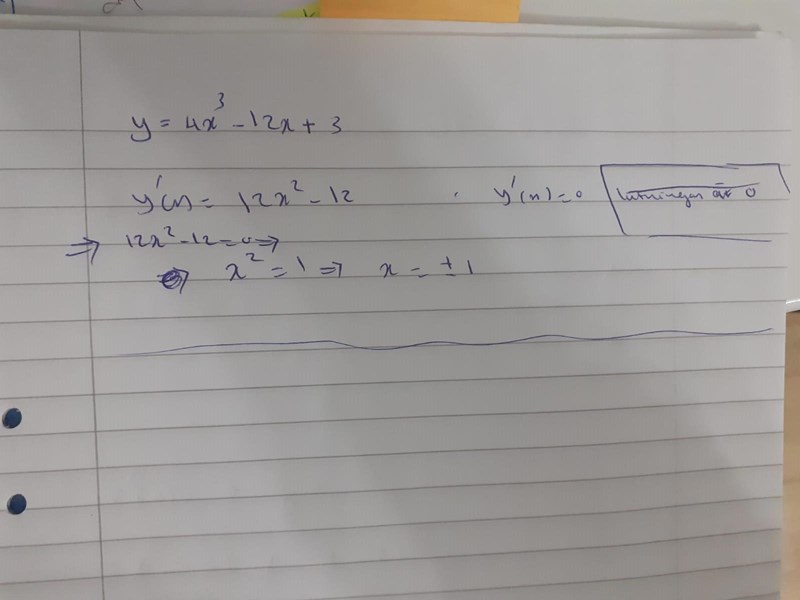 y = 4x³ - 12x + 3
y'(x) = 12x² - 12 y'(x) = 0 lutningen är 0
⇒ 12x² - 12 = 0 ⇒
⇒ x² = 1 ⇒ x = ± 1